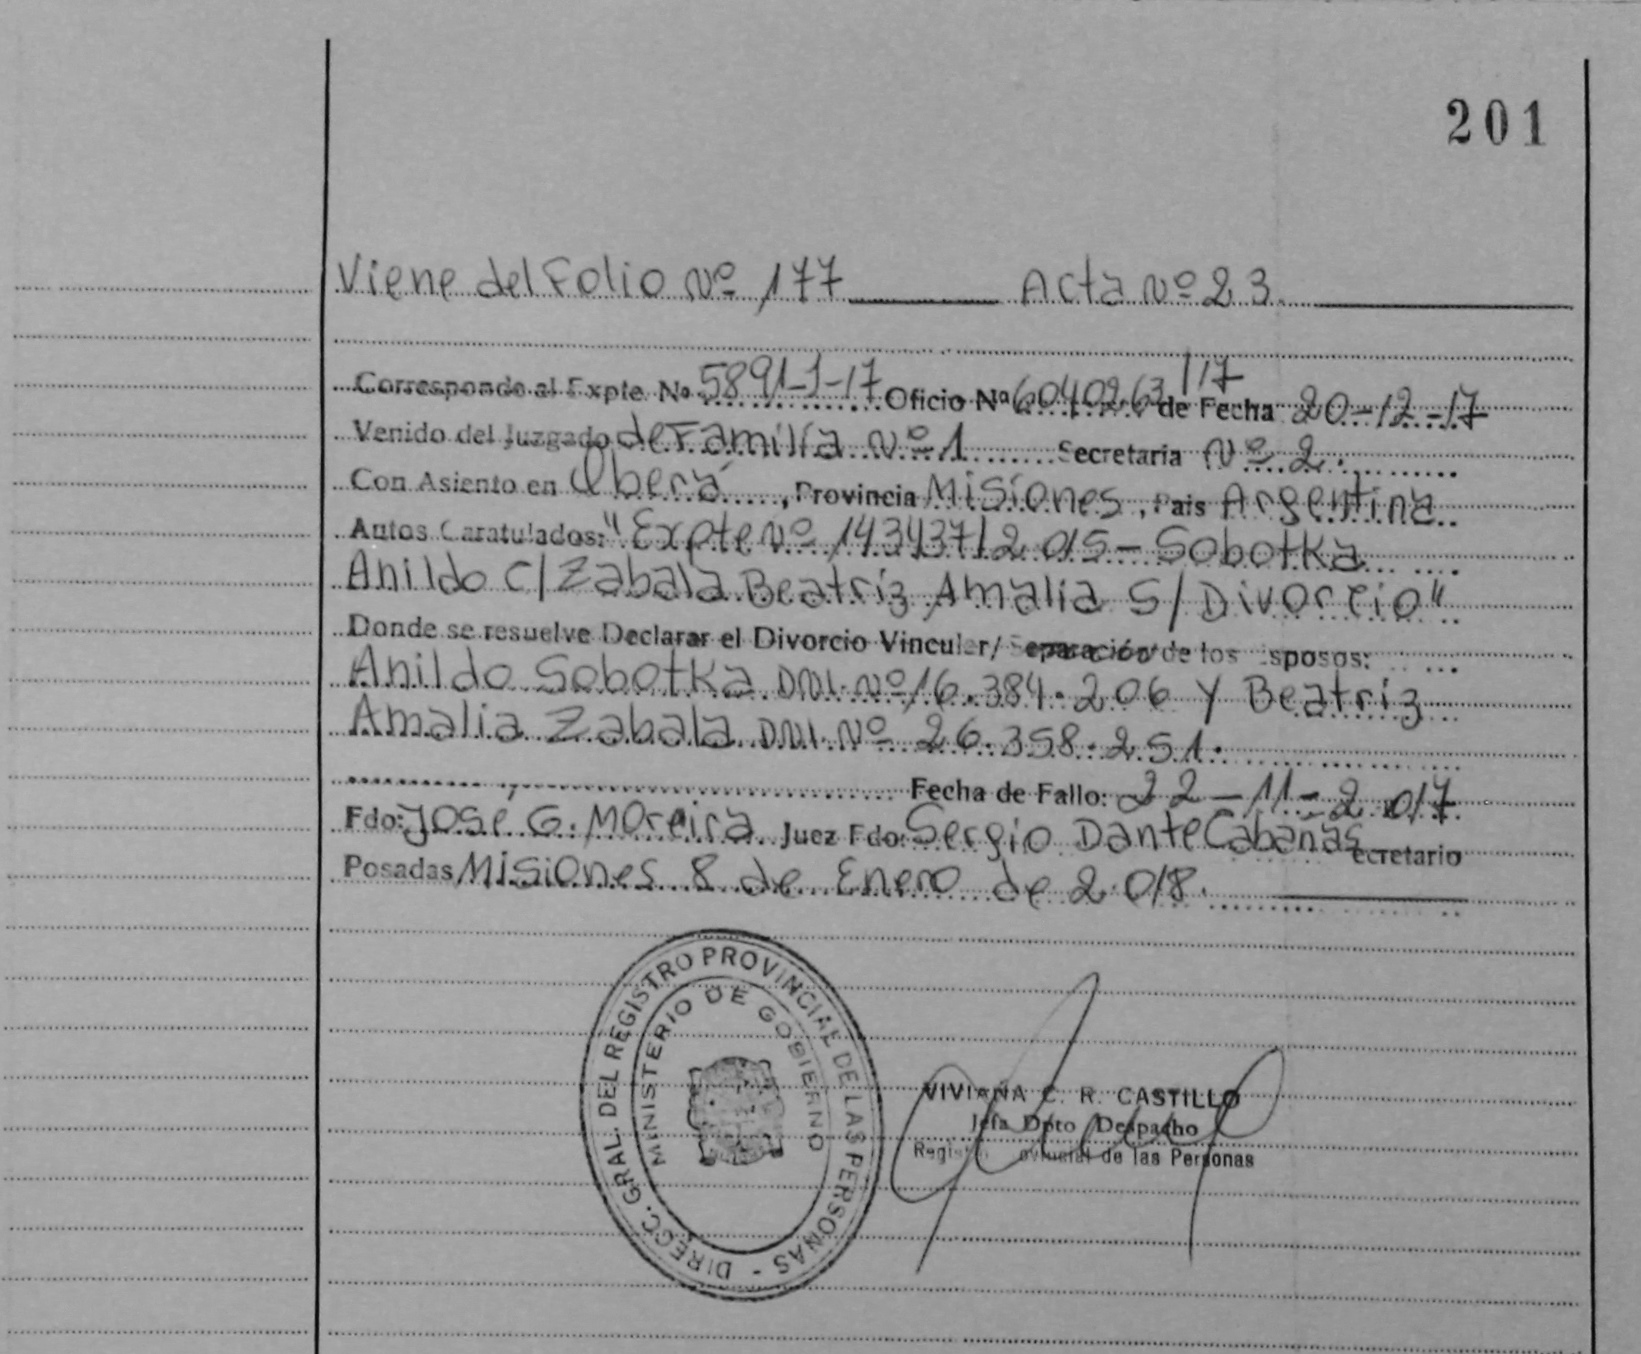 201
Viene del Folio Nº 177 Acta Nº 23.
Corresponde al Expte. Nº 5891-1-17 Oficio Nº 6040263/17 de Fecha 20-12-17
Venido del Juzgado de Familia Nº 1 Secretaria Nº 2.
Con Asiento en Oberá, Provincia Misiones, Pais Argentina
Autos Caratulados: "Expte Nº 143437/2015 - Sobotka
Anildo c/ Zabala Beatriz Amalia S/ Divorcio"
Donde se resuelve Declarar el Divorcio Vincular/ Separación de los sposos:
Anildo Sobotka DNI. Nº 16.384.206 y Beatriz
Amalia Zabala DNI. Nº 26.358.251.
Fecha de Fallo: 22-11-2017
Fdo: José G. Moreira Juez Fdo: Sergio Dante Cabañas ecretario
Posadas Misiones 8 de Enero de 2018.
DIRECC. GRAL. DEL REGISTRO PROVINCIAL DE LAS PERSONAS -
MINISTERIO DE GOBIERNO
VIVIANA C. R. CASTILLO
Jefa Dpto Despacho
de las Personas